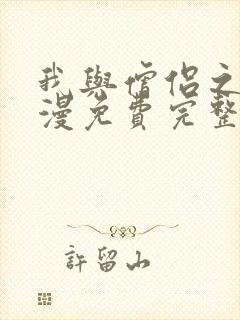 我與僧侶之
漫免費完整
許留山